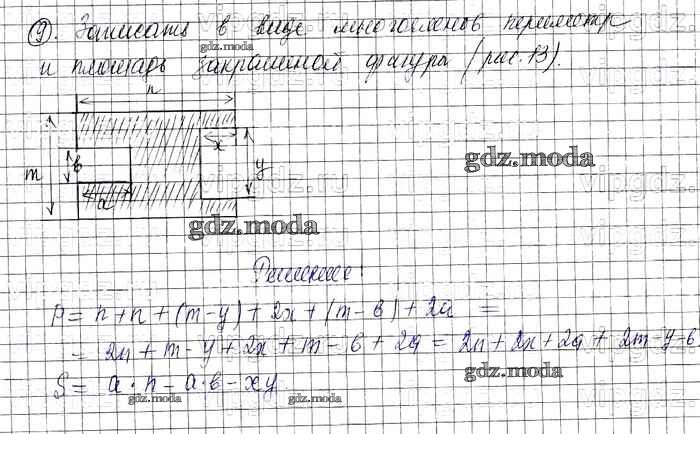 9. Записать в виде многочленов периметр
gdz.moda
и площадь закрашенной фигуры (рис. 13).
n
x
в
y
m
a
gdz.moda
vipgdz.ru
gdz.moda
Решение:
P = n + n + (m - y) + 2x + (m - в) + 2a =
= 2n + m - y + 2x + m - в + 2a = 2n + 2x + 2a + 2m - y - в
gdz.moda
S = a · n - a · в - xy
gdz.moda
gdz.moda